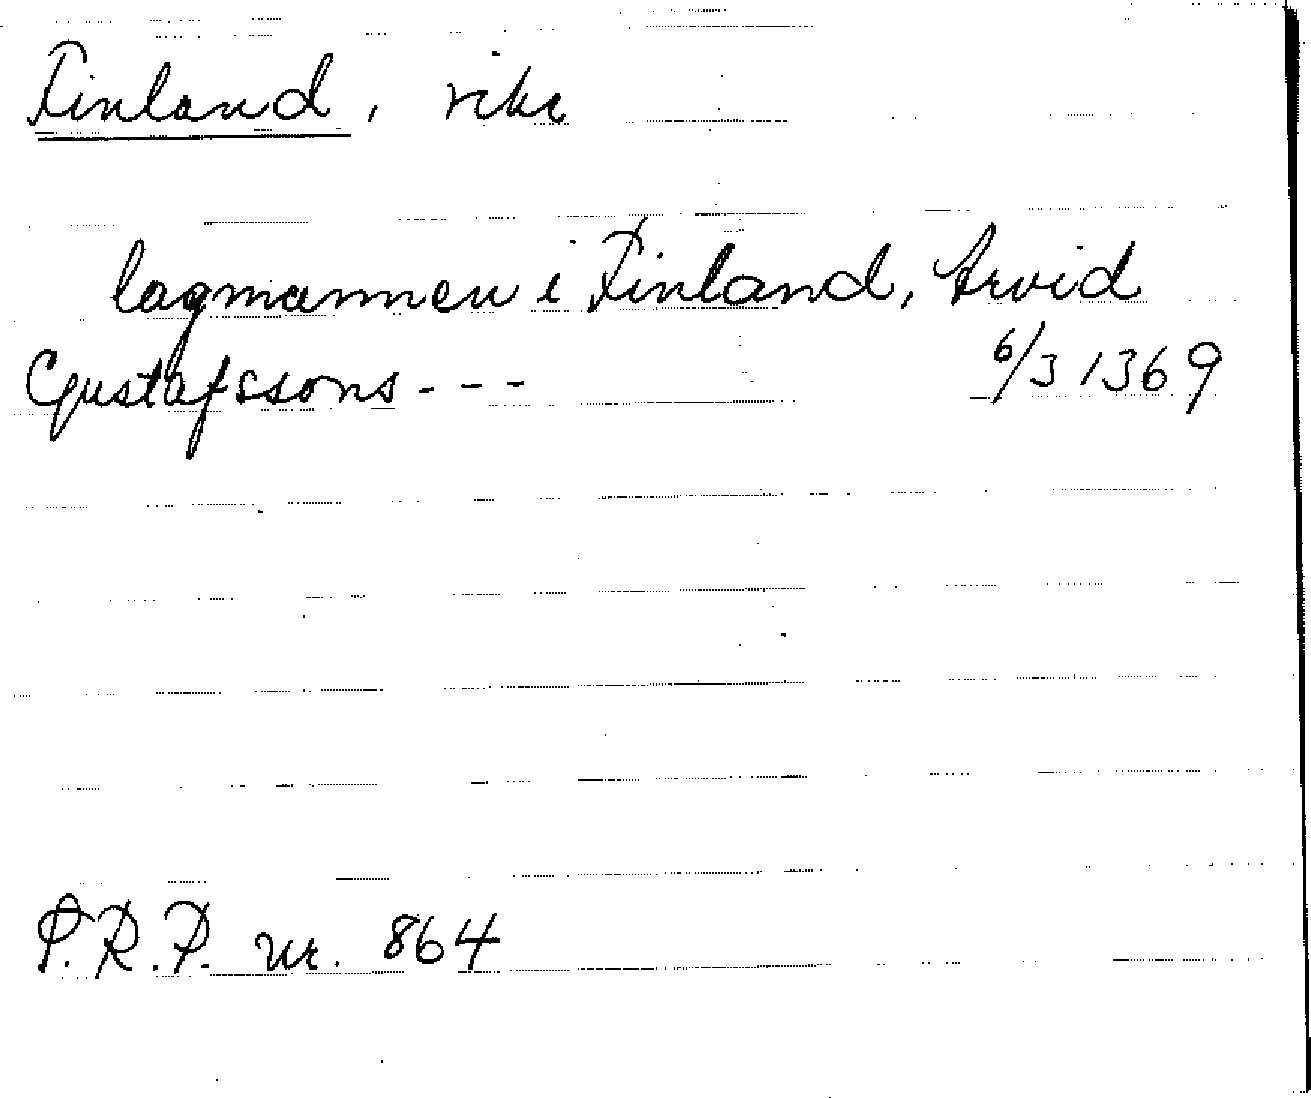 Finland, rike
lagmannen i Finland, Arvid
Gustafssons - - - 6/3 1369
P.R.P. nr. 864